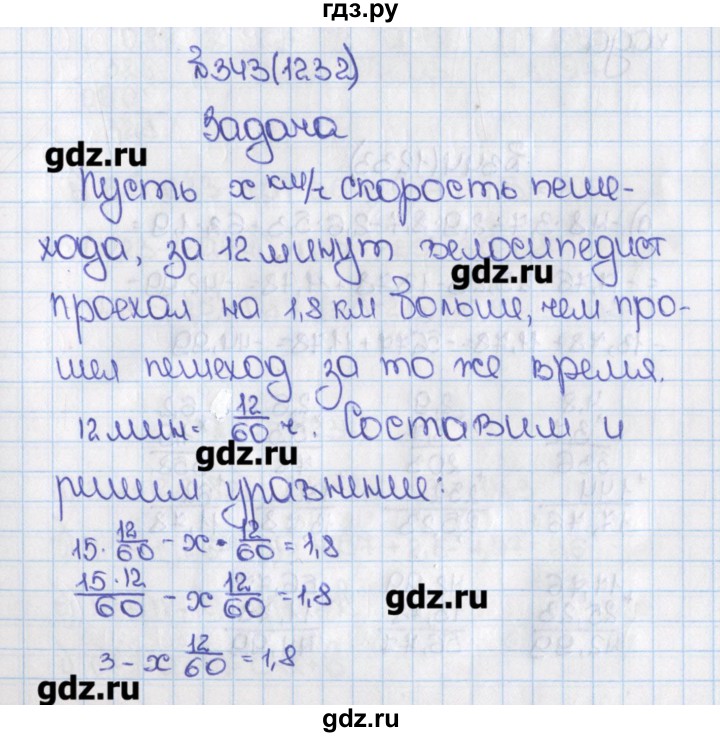 гдз.ру
№343(1232)
Задача
gdz.ru
Пусть x км/ч скорость пеше-
хода, за 12 минут велосипедист
gdz.ru
проехал на 1,8 км больше, чем про-
шел пешеход за то же время.
12 мин = 12/60 ч. Составим и
gdz.ru
решим уравнение:
15 · 12/60 - x · 12/60 = 1,8
15 · 12/60 - x 12/60 = 1,8
gdz.ru
3 - x 12/60 = 1,8
gdz.ru
gdz.ru